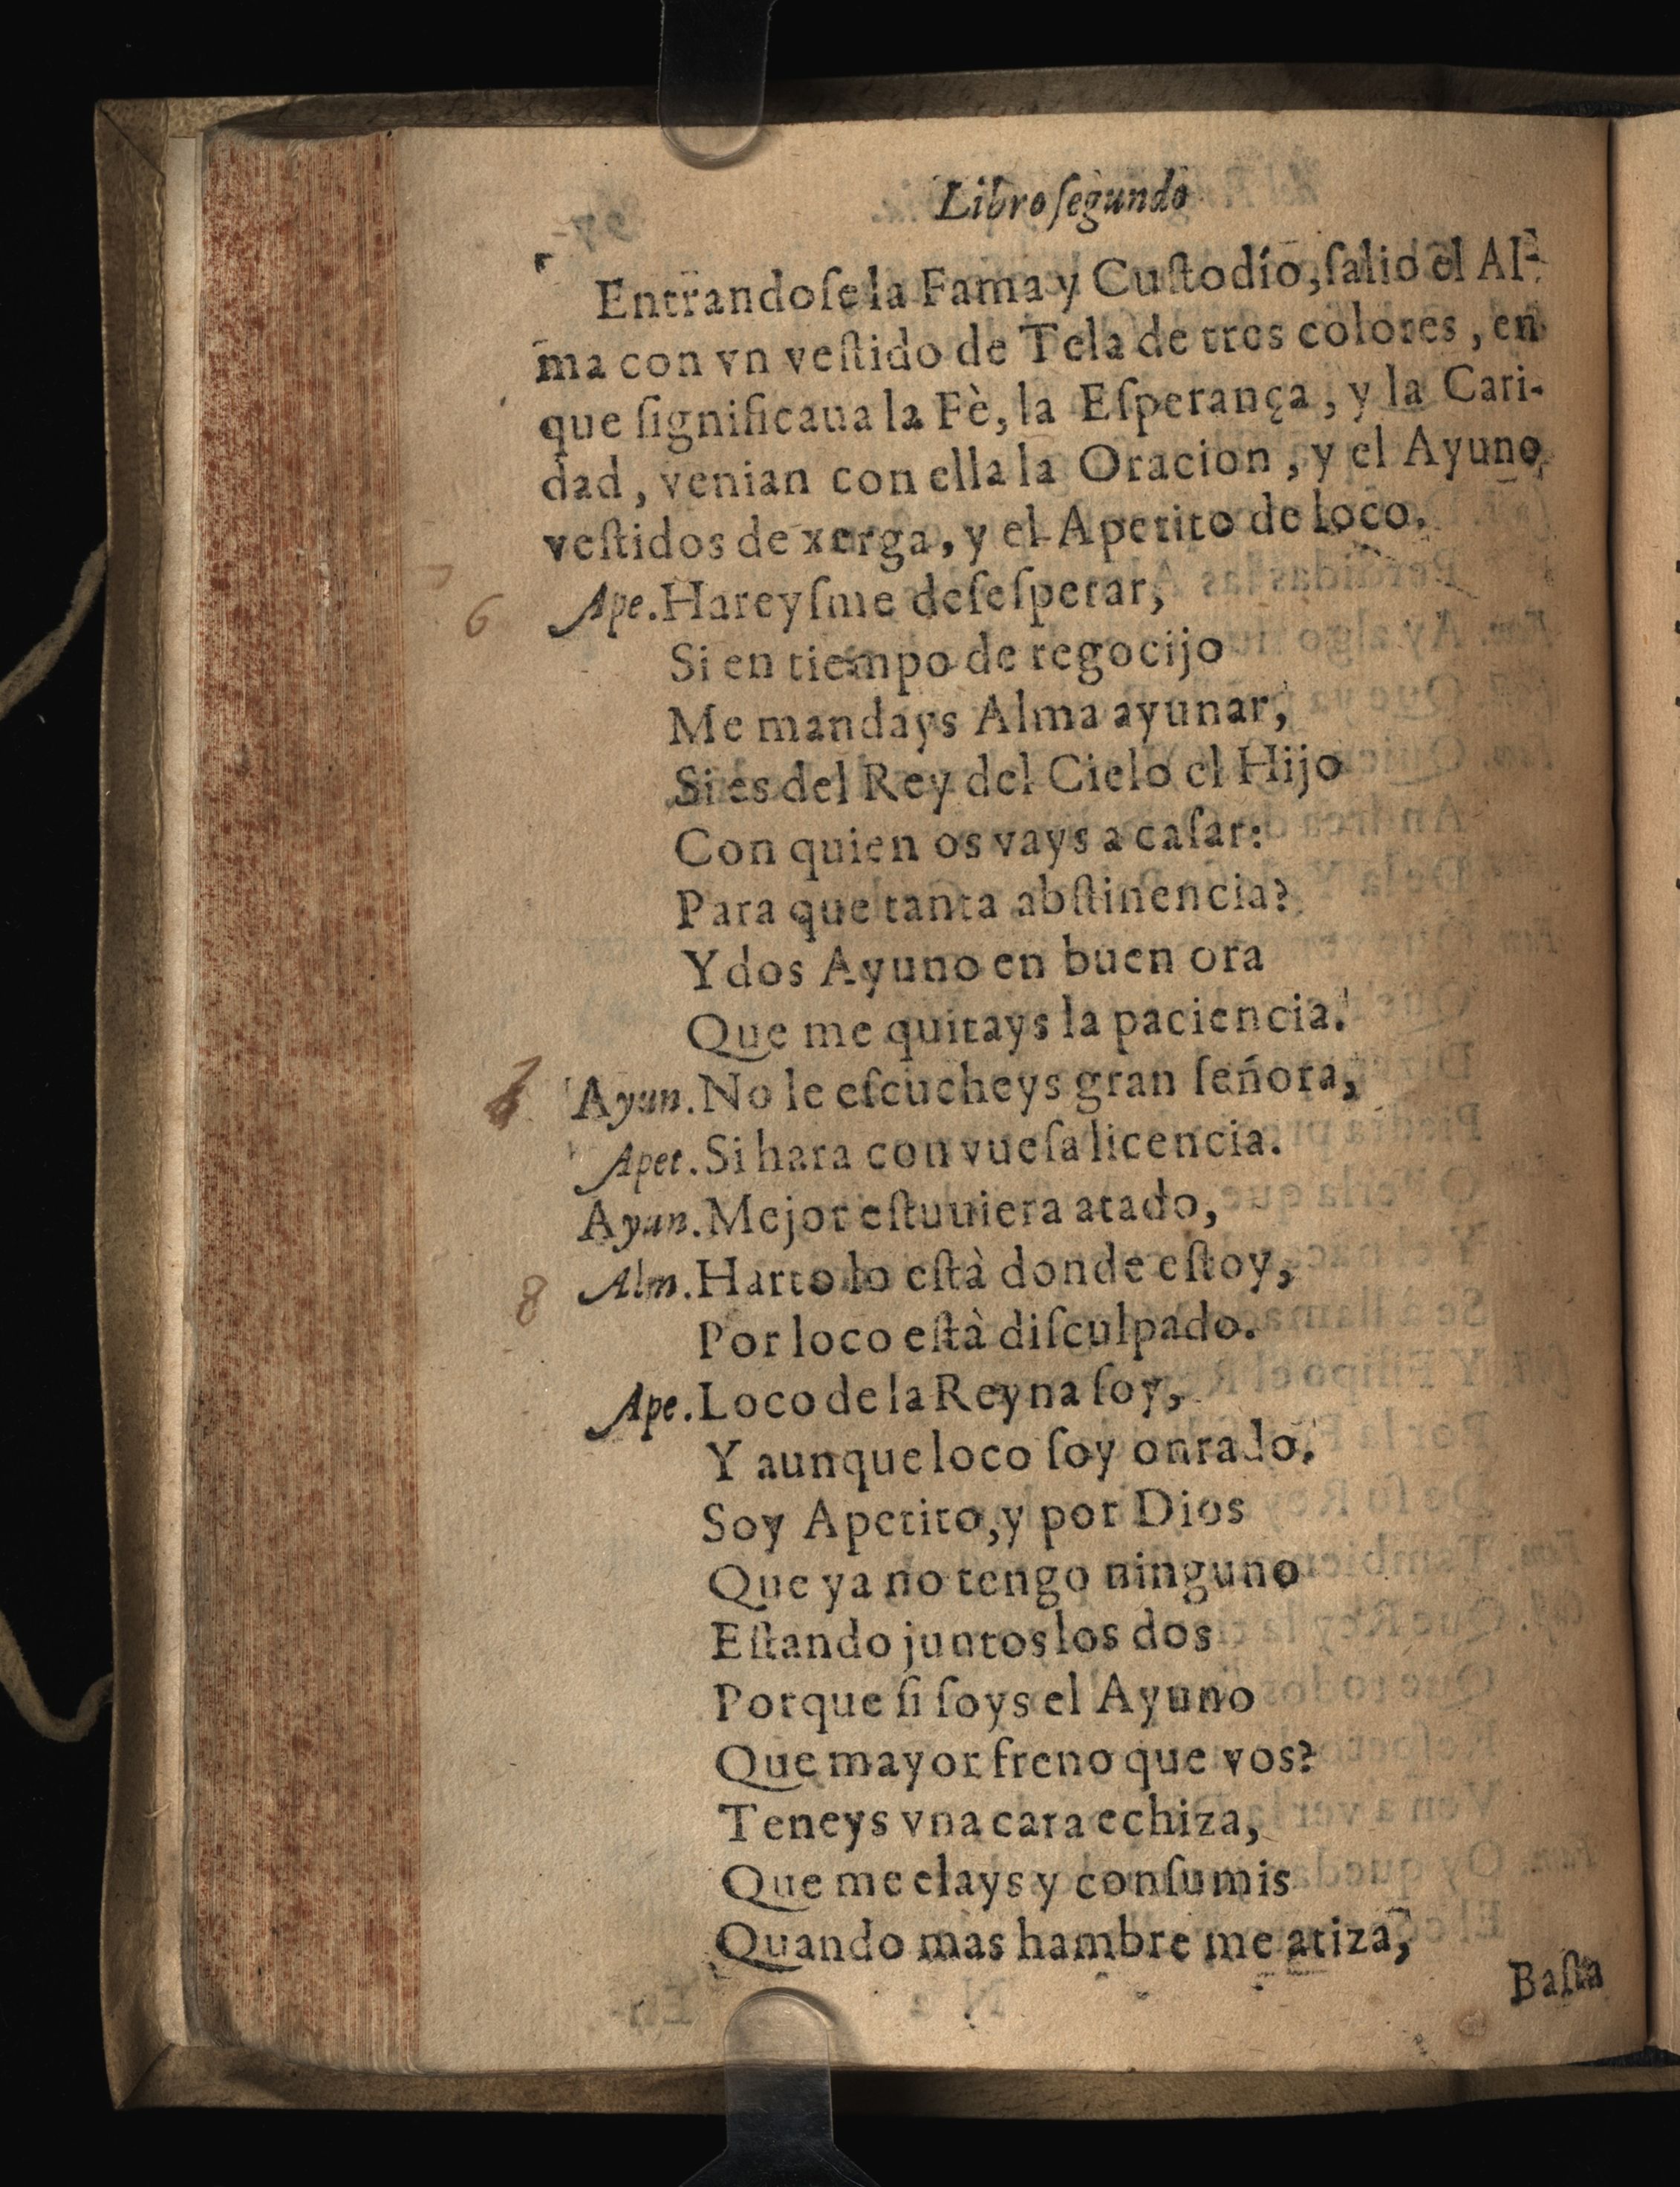 Libro ſegundo
Entrandoſe la Fama y Cuſtodío, ſalio el Al-
ma con vn veſtido de Tela de tres colores, en
que ſignificaua la Fè, la Eſperança, y la Cari-
dad, venian con ella la Oracion, y el Ayuno
veſtidos de xerga, y el Apetito de loco.
6 Ape. Hareyſme deſeſperar,
Si en tiempo de regocijo
Me mandays Alma ayunar,
Si es del Rey del Cielo el Hijo
Con quien os vays a caſar:
Para que tanta abſtinencia?
Ydos Ayuno en buen ora
Que me quitays la paciencia.
Ayun. No le eſcucheys gran ſeñora,
Apet. Si hara con vueſa licencia.
Ayun. Mejor eſtuuiera atado,
8 Alm. Harto lo eſtà donde eſtoy,
Por loco eſtà diſculpado.
Ape. Loco de la Reyna ſoy,
Y aunque loco ſoy onrado.
Soy Apetito, y por Dios
Que ya no tengo ninguno
Eſtando juntos los dos
Porque ſi ſoys el Ayuno
Que mayor freno que vos?
Teneys vna cara echiza,
Que me elays y conſumis
Quando mas hambre me atiza,
Baſta